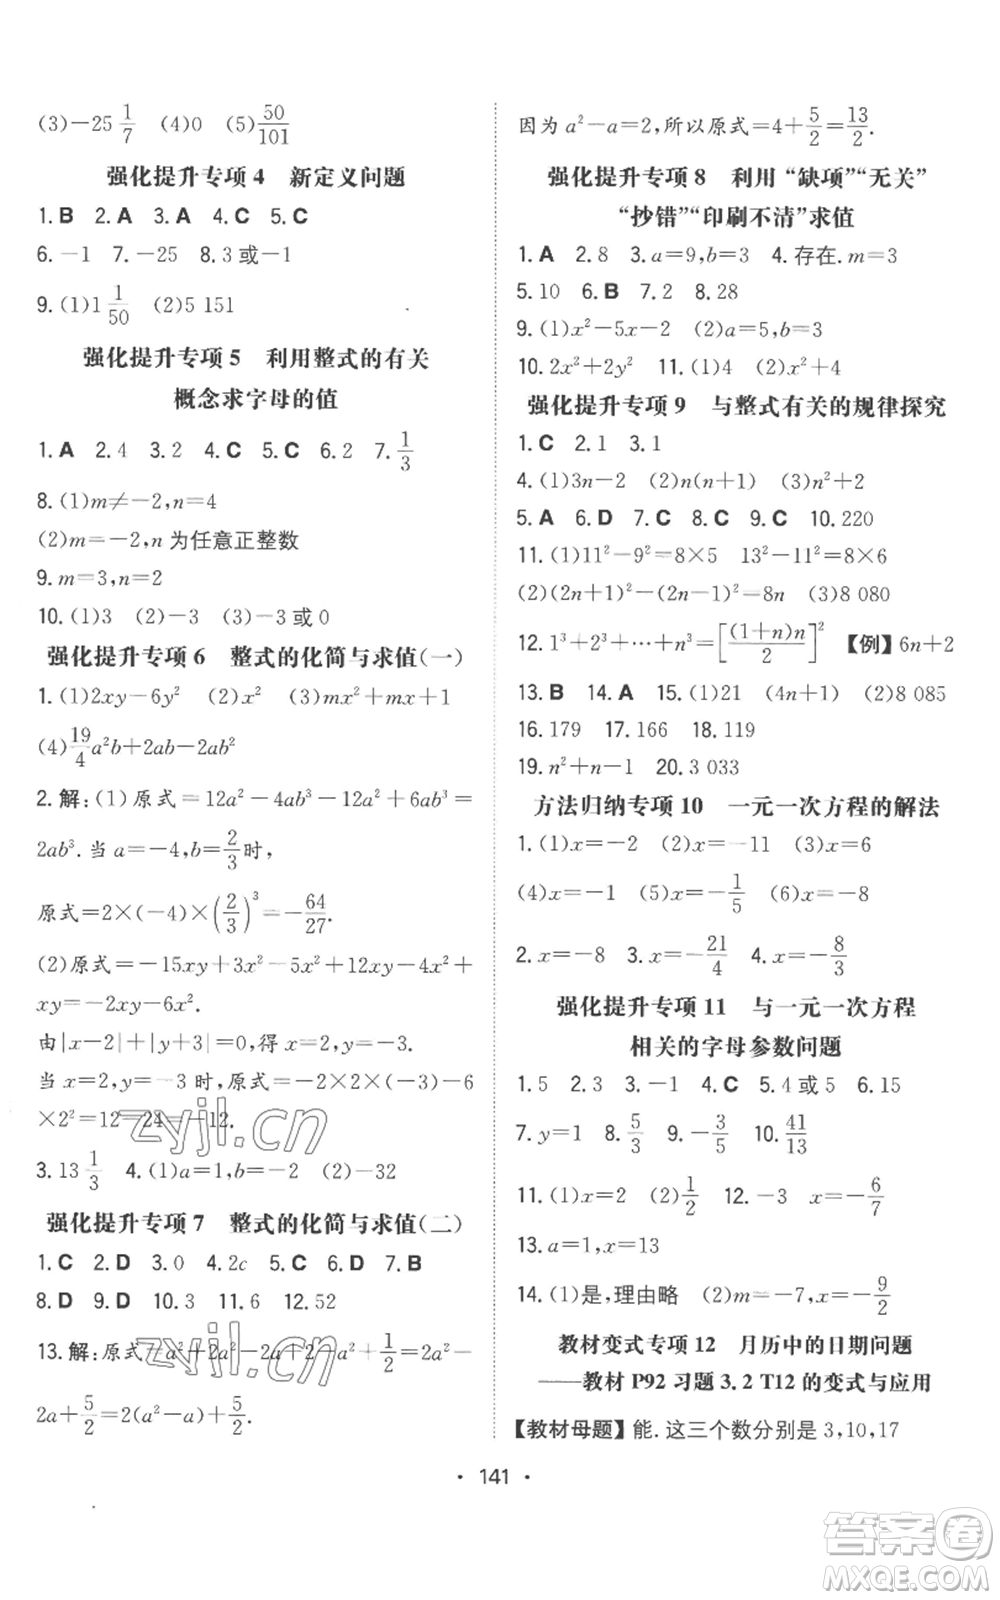 (3)－25 1/7　(4)0　(5)50/101
强化提升专项 4　新定义问题
1. B　2. A　3. A　4. C　5. C
6. －1　7. －25　8. 3 或－1
9. (1)1 1/50　(2)5 151
强化提升专项 5　利用整式的有关
概念求字母的值
1. A　2. 4　3. 2　4. C　5. C　6. 2　7. 1/3
8. (1)m≠－2,n＝4
(2)m＝－2,n 为任意正整数
9. m＝3,n＝2
10. (1)3　(2)－3　(3)－3 或 0
强化提升专项 6　整式的化简与求值(一)
1. (1)2xy－6y²　(2)x²　(3)mx²＋mx＋1
(4)19/4 a²b＋2ab－2ab²
2. 解:(1)原式＝12a²－4ab³－12a²＋6ab³＝
2ab³. 当 a＝－4,b＝2/3 时,
原式＝2×(－4)×(2/3)³＝－64/27.
(2)原式＝－15xy＋3x²－5x²＋12xy－4x²＋
xy＝－2xy－6x².
由|x－2|＋|y＋3|＝0,得 x＝2,y＝－3.
当 x＝2,y＝－3 时,原式＝－2×2×(－3)－6
×2²＝12－24＝－12.
3. 13 1/3　4. (1)a＝1,b＝－2　(2)－32
强化提升专项 7　整式的化简与求值(二)
1. C　2. D　3. 0　4. 2c　5. C　6. D　7. B
8. D　9. D　10. 3　11. 6　12. 52
13. 解:原式＝a²＋2a²－2a＋2－a²＋1/2＝2a²－
2a＋5/2＝2(a²－a)＋5/2.
因为 a²－a＝2,所以原式＝4＋5/2＝13/2.
强化提升专项 8　利用“缺项”“无关”
“抄错”“印刷不清”求值
1. A　2. 8　3. a＝9,b＝3　4. 存在. m＝3
5. 10　6. B　7. 2　8. 28
9. (1)x²－5x－2　(2)a＝5,b＝3
10. 2x²＋2y²　11. (1)4　(2)x²＋4
强化提升专项 9　与整式有关的规律探究
1. C　2. 1　3. 1
4. (1)3n－2　(2)n(n＋1)　(3)n²＋2
5. A　6. D　7. C　8. C　9. C　10. 220
11. (1)11²－9²＝8×5　13²－11²＝8×6
(2)(2n＋1)²－(2n－1)²＝8n　(3)8 080
12. 1³＋2³＋⋯＋n³＝[(1＋n)n/2]²　【例】6n＋2
13. B　14. A　15. (1)21　(4n＋1)　(2)8 085
16. 179　17. 166　18. 119
19. n²＋n－1　20. 3 033
方法归纳专项 10　一元一次方程的解法
1. (1)x＝－2　(2)x＝－11　(3)x＝6
(4)x＝－1　(5)x＝－1/5　(6)x＝－8
2. x＝－8　3. x＝－21/4　4. x＝－8/3
强化提升专项 11　与一元一次方程
相关的字母参数问题
1. 5　2. 3　3. －1　4. C　5. 4 或 5　6. 15
7. y＝1　8. 5/3　9. －3/5　10. 41/13
11. (1)x＝2　(2)1/2　12. －3　x＝－6/7
13. a＝1,x＝13
14. (1)是,理由略　(2)m＝－7,x＝－9/2
教材变式专项 12　月历中的日期问题
——教材 P92 习题 3. 2 T12 的变式与应用
【教材母题】能. 这三个数分别是 3,10,17
· 141 ·
zyjl.cn
zyjl.cn
答案圈
MXQE.COM